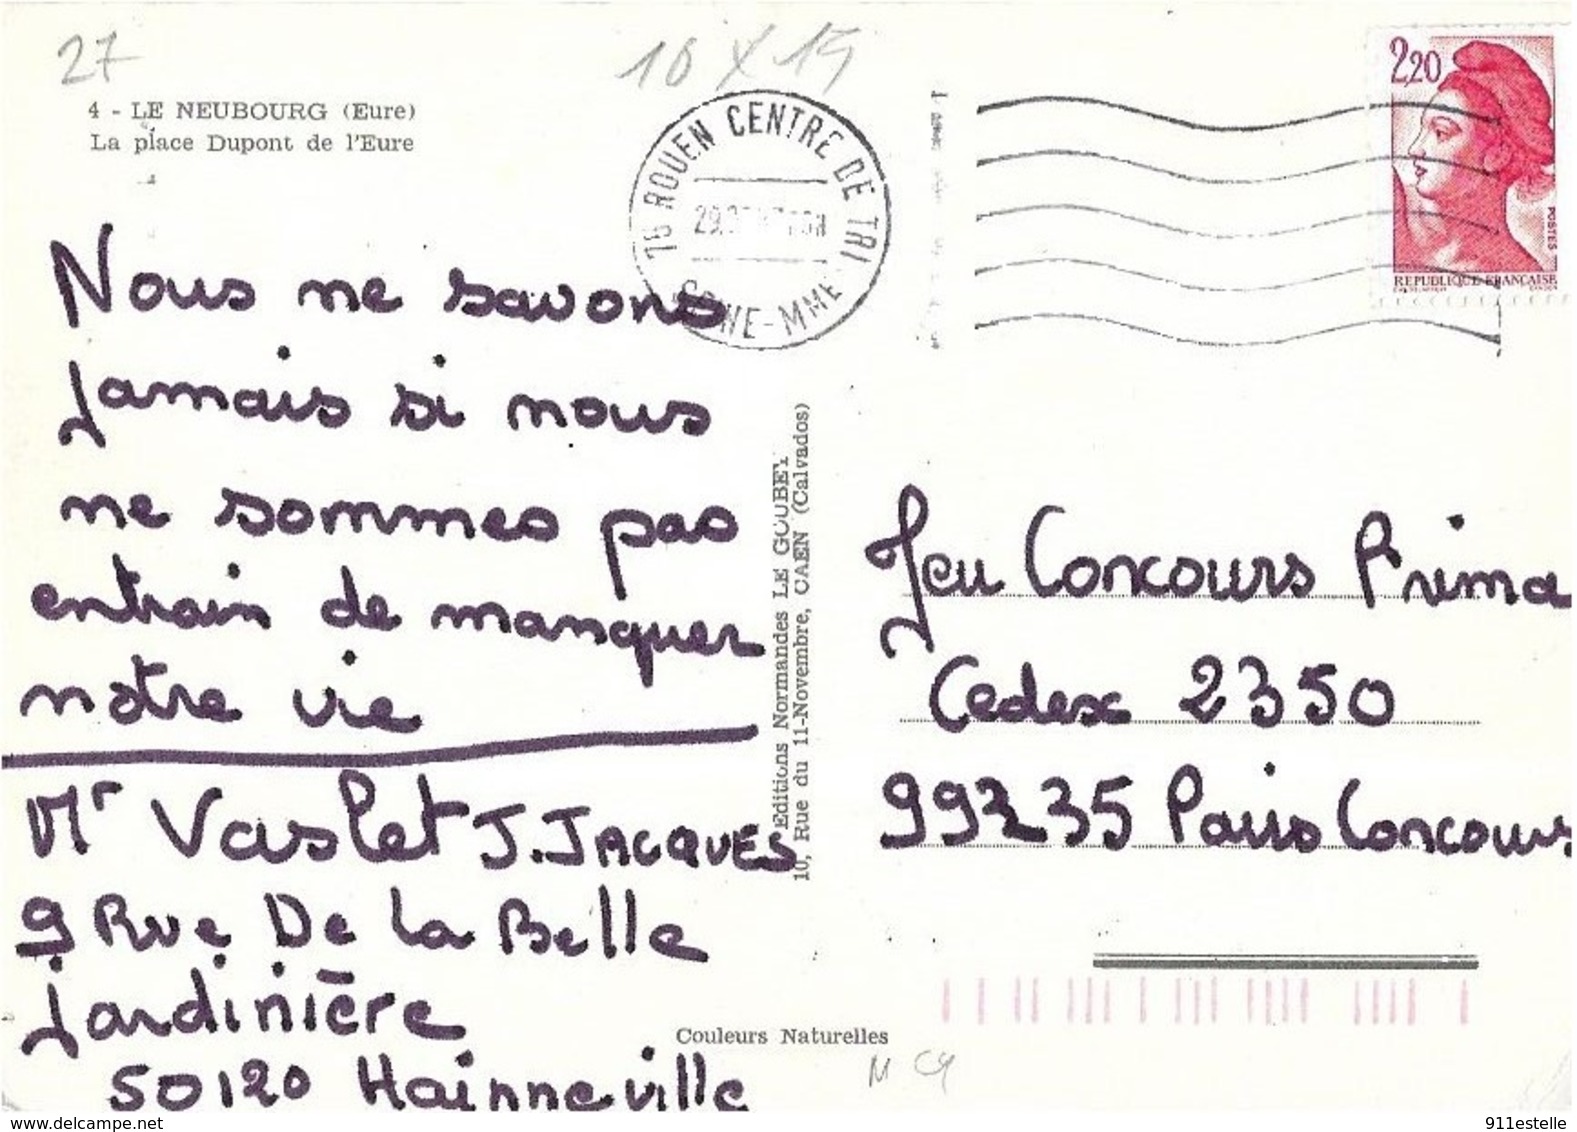 27
10 x 15
4 - LE NEUBOURG (Eure)
La place Dupont de l'Eure
76 ROUEN CENTRE DE TRI
SEINE-MME
2,20
POSTES
REPUBLIQUE FRANÇAISE
Nous ne savons
jamais si nous
ne sommes pas
entrain de manquer
notre vie
Mr Vaslet J.JACQUES
9 Rue De La Belle
jardinière
50120 Hainneville
Editions Normandes LE GOUBEY
10, Rue du 11-Novembre, CAEN (Calvados)
Jeu Concours Prima
Cedex 2350
99235 Paris Concours
Couleurs Naturelles
delcampe.net
911estelle